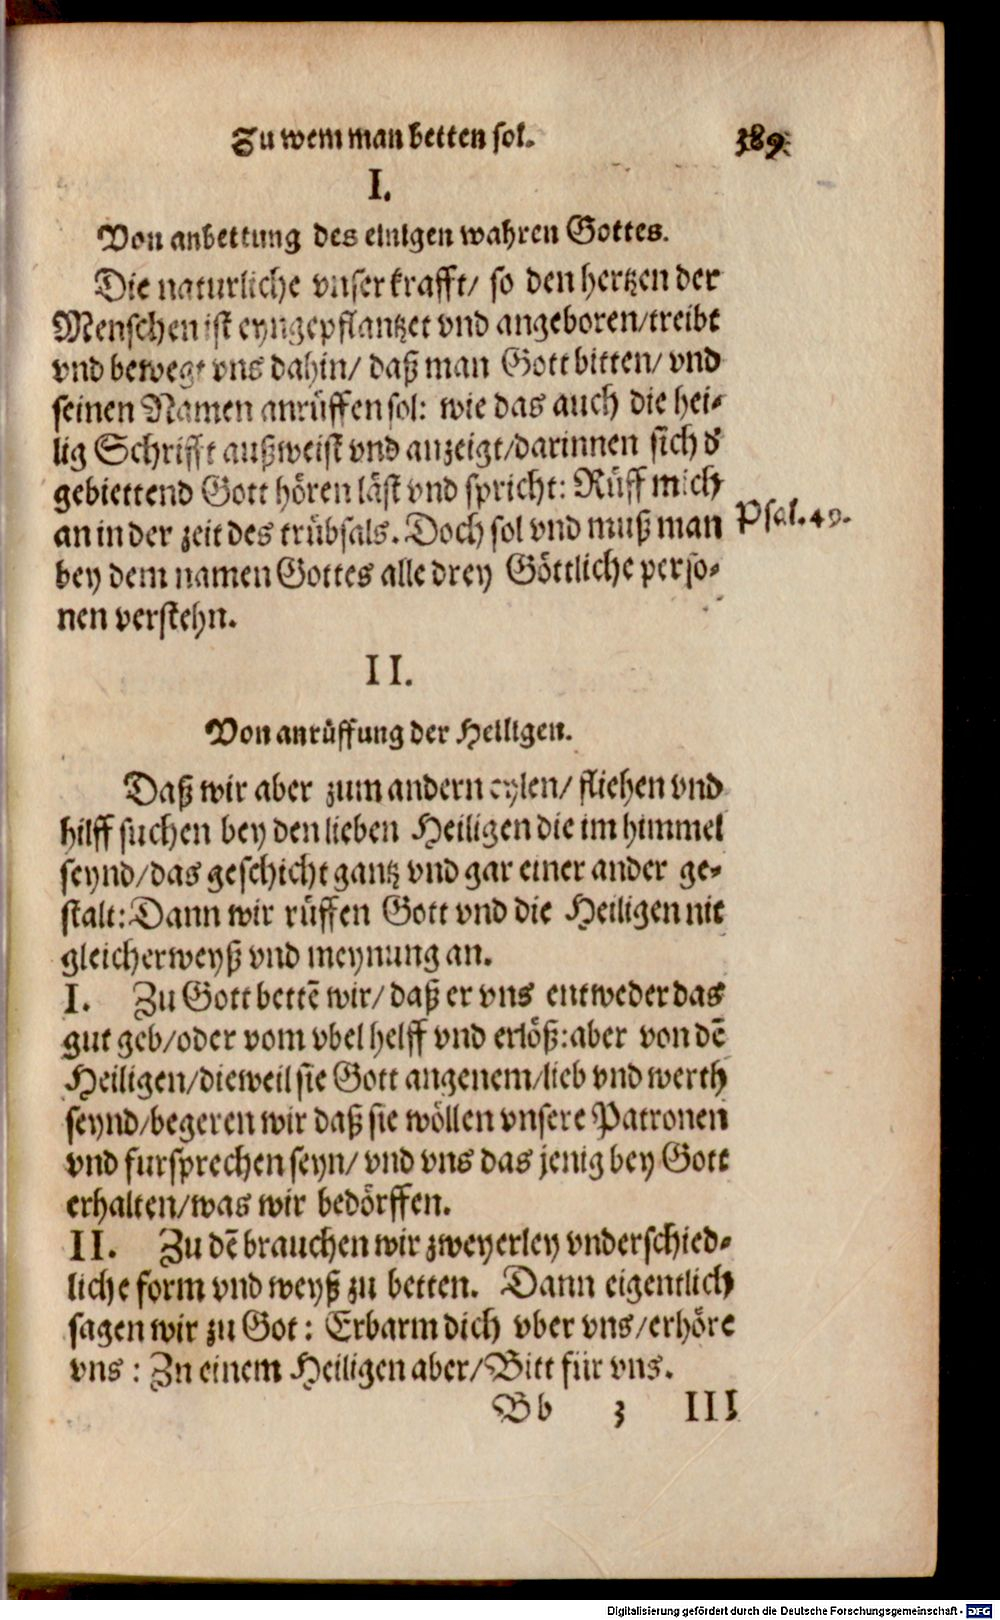 Zu wem man betten sol. 389.
I.
Von anbettung des einigen wahren Gottes.
Die naturliche vnser krafft/ so den hertzen der
Menschen ist eyngepflantzet vnd angeboren/treibt
vnd bewegt vns dahin/ daß man Gott bitten/ vnd
seinen Namen anrüffen sol: wie das auch die hei-
lig Schrifft außweist vnd anzeigt/darinnen sich d'
gebiettend Gott hören läst vnd spricht: Rüff mich
an in der zeit des trübsals. Doch sol vnd muß man
Psal. 49.
bey dem namen Gottes alle drey Göttliche perso-
nen verstehn.
II.
Von anrüffung der Heiligen.
Daß wir aber zum andern eylen/ fliehen vnd
hilff suchen bey den lieben Heiligen die im himmel
seynd/das geschicht gantz vnd gar einer ander ge-
stalt: Dann wir rüffen Gott vnd die Heiligen nit
gleicherweyß vnd meynung an.
I. Zu Gott bettē wir/ daß er vns entweder das
gut geb/oder vom vbel helff vnd erlöß: aber von dē
Heiligen/dieweil sie Gott angenem/lieb vnd werth
seynd/begeren wir daß sie wöllen vnsere Patronen
vnd fursprechen seyn/ vnd vns das jenig bey Gott
erhalten/was wir bedörffen.
II. Zu dē brauchen wir zweyerley vnderschied-
liche form vnd weyß zu betten. Dann eigentlich
sagen wir zu Got: Erbarm dich vber vns/erhöre
vns: Zu einem Heiligen aber/Bitt für vns.
Bb 3 III
Digitalisierung gefördert durch die Deutsche Forschungsgemeinschaft - DFG